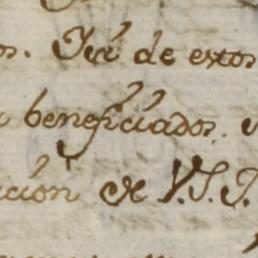 os. Irá de estos
beneficiados.
ción de V.S.I.